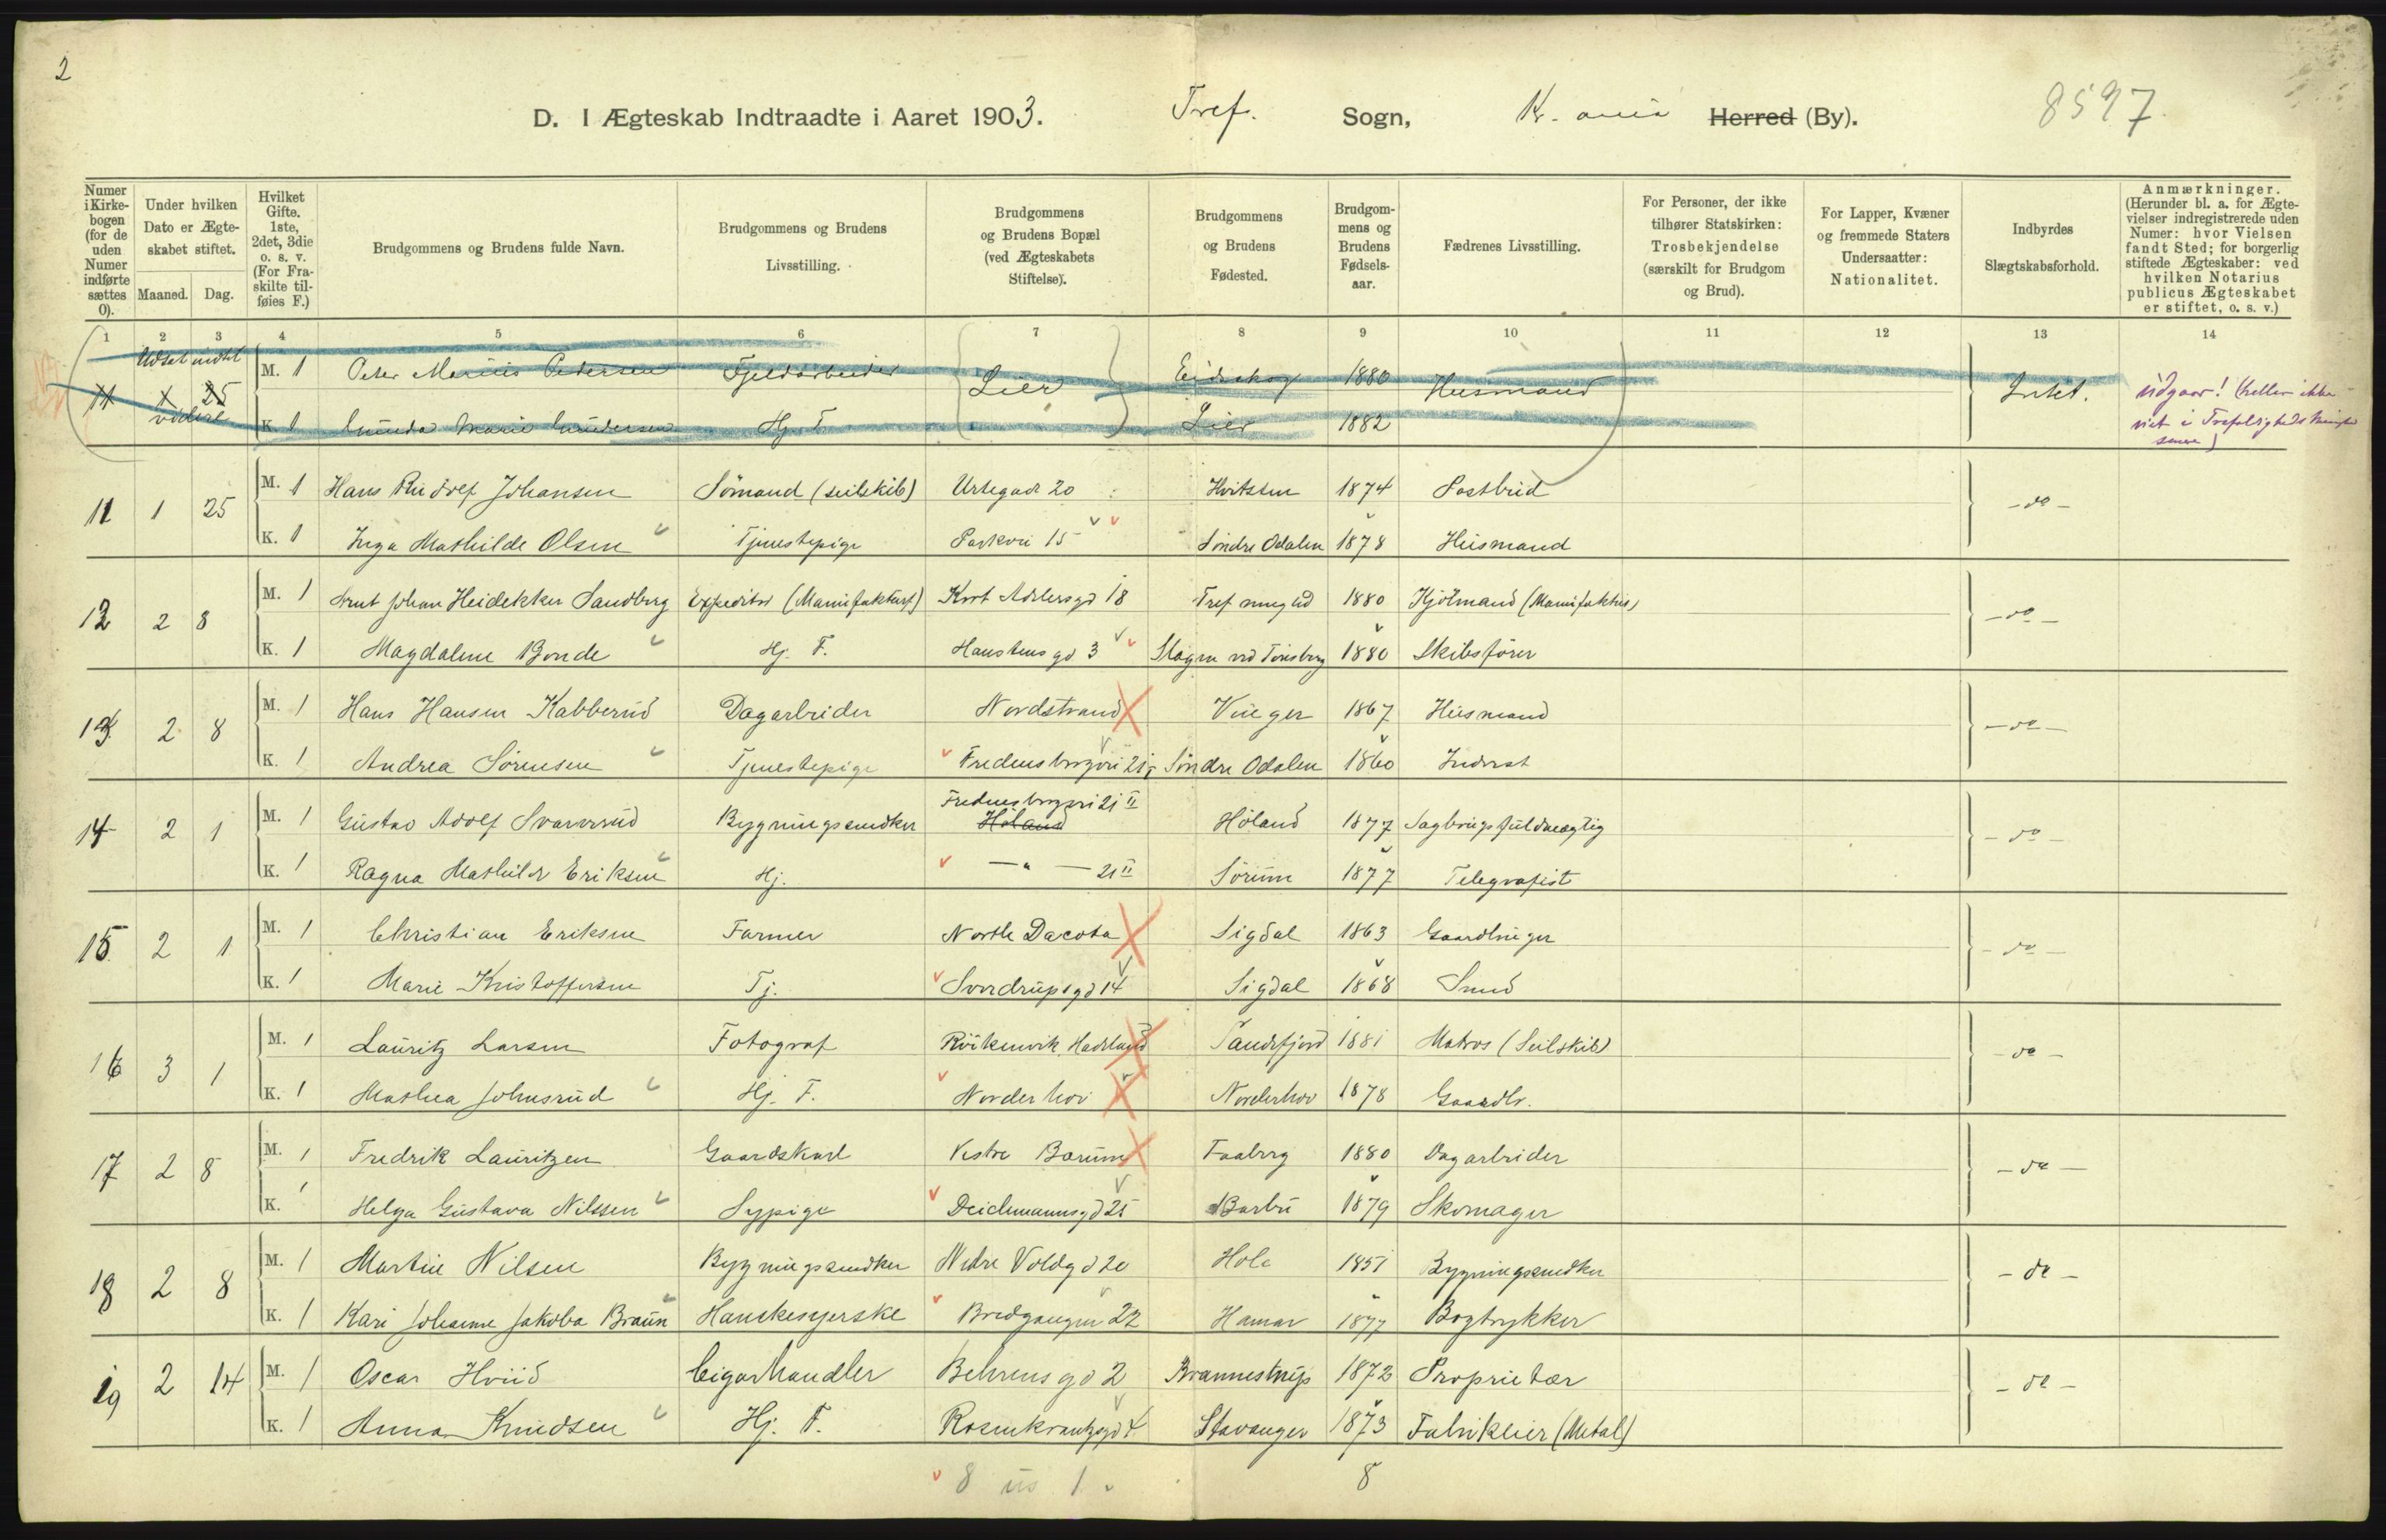 2
D. I Ægteskab Indtraadte i Aaret 1903. Tref. Sogn, Kr. ania Herred (By). 8597
Numer i Kirkebogen (for de uden Numer indførte sættes 0).
Under hvilken Dato er Ægteskabet stiftet.
Maaned. Dag.
Hvilket Gifte. 1ste, 2det, 3die o. s. v. (For Fraskilte tilføies F.)
Brudgommens og Brudens fulde Navn.
Brudgommens og Brudens Livsstilling.
Brudgommens og Brudens Bopæl (ved Ægteskabets Stiftelse).
Brudgommens og Brudens Fødested.
Brudgommens og Brudens Fødselsaar.
Fædrenes Livsstilling.
For Personer, der ikke tilhører Statskirken: Trosbekjendelse (særskilt for Brudgom og Brud).
For Lapper, Kvæner og fremmede Staters Undersaatter: Nationalitet.
Indbyrdes Slægtskabsforhold.
Anmærkninger. (Herunder bl. a. for Ægtevielser indregistrerede uden Numer: hvor Vielsen fandt Sted; for borgerlig stiftede Ægteskaber: ved hvilken Notarius publicus Ægteskabet er stiftet, o. s. v.)
1 2 3 4 5 6 7 8 9 10 11 12 13 14
Udsat indtil videre
11 1 25 M. 1 Peter Marius Pedersen Fjeldarbeider Lier Eidsskog 1880 Husmand Intet. Udgaar! (heller ikke viet i Trefoldigheds Menighed senere)
K. 1 Gunda Marie Gundersen Hj. F. Lier 1882
11 1 25 M. 1 Hans Rudolf Johansen Sömand (seilskib) Urtegad 20 Hvitsten 1874 Postbud - do -
K. 1 Inga Mathilde Olsen Tjenestepige Parkvei 15 Söndre Odalen 1878 Husmand
12 2 8 M. 1 Arnt Johan Heidekker Sandberg Expeditör (Manufaktur) Kort Adelersgd 18 Tref menighd 1880 Kjöbmand (Manufaktur) - do -
K. 1 Magdalene Bonde Hj. F. Haustens gd 3 Slagen ved Tönsberg 1880 Skibsförer
13 2 8 M. 1 Hans Hansen Kabberud Dagarbeider Nordstrand Vinger 1867 Husmand - do -
K. 1 Andrea Sörensen Tjenestepige Fredensborgvei 21 Söndre Odalen 1860 Inderst
14 2 1 M. 1 Gustav Adolf Svarverud Bygningssnedker Fredensborgvei 21 II Höland Höland 1877 Sagbrugsfuldmægtig - do -
K. 1 Ragna Mathilde Eriksen Hj. - " - 21 II Sörum 1877 Telegrafist
15 2 1 M. 1 Christian Eriksen Farmer North Dacota Sigdal 1863 Gaardbruger - do -
K. 1 Marie Kristoffersen Tj. Sverdrupsgd 14 Sigdal 1868 Smed
16 3 1 M. 1 Lauritz Larsen Fotograf Röikenvik, Hadeland Sandefjord 1881 Matros (Seilskib) - do -
K. 1 Mathea Johnsrud Hj. F. Norderhov Norderhov 1878 Gaardbr.
17 2 8 M. 1 Fredrik Lauritzen Gaardskarl Vestre Bærum Faaberg 1880 Dagarbeider - do -
K. 1 Helga Gustava Nilssen Sypige Deichmannsgd 25 Barbu 1879 Skomager
18 2 8 M. 1 Martin Nilsen Bygningssnedker Nedre Voldgd 20 Hole 1851 Bygningssnedker - do -
K. 1 Kari Johanne Jakoba Braun Hanskesyerske Bredgangen 22 Hamar 1877 Bogtrykker
19 2 14 M. 1 Oscar Hviid Cigarhandler Behrens gd 2 Brannestrup 1872 Proprietær - do -
K. 1 Anna Knudsen Hj. F. Rosenkrantzgd 4 Stavanger 1873 Fabrikeier (Metal)
8 us 1 8